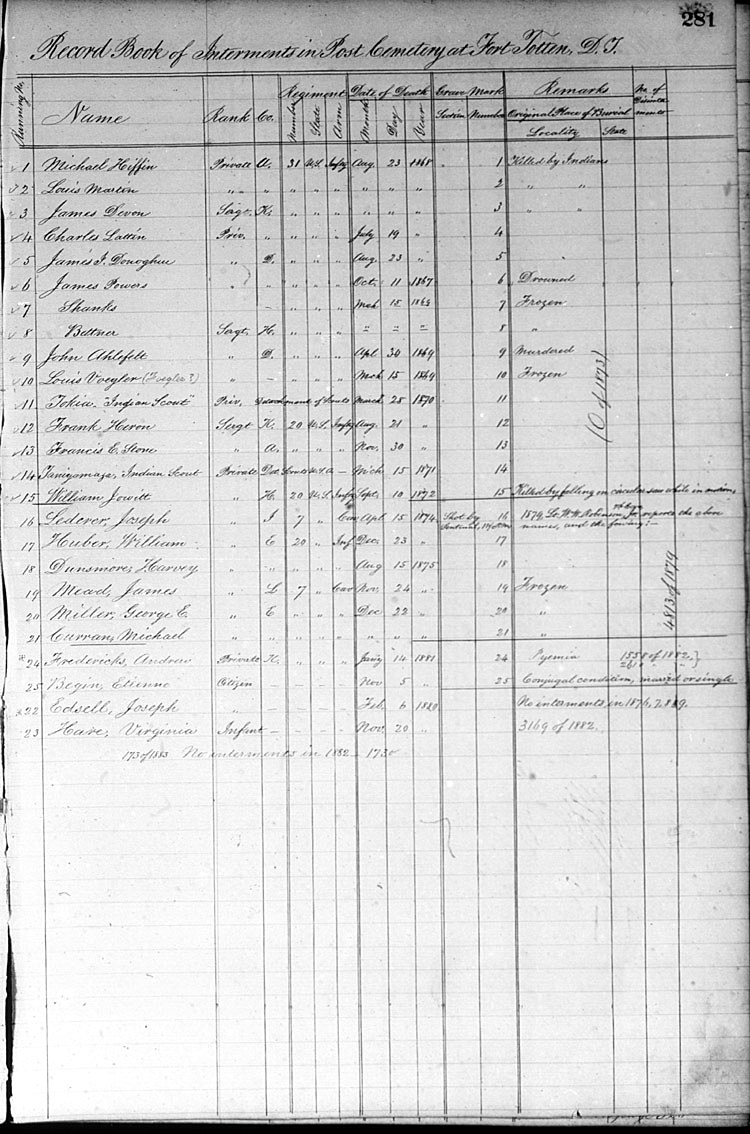 281
Record Book of Interments in Post Cemetery at Fort Totten, D. T.
Regiment Date of Death Grave Mark Remarks No. of
Running No. Name Rank Co. Number State Arm Month Day Year Section Number Original Place of Burial
Locality State
1 Michael Hiffin Private A. 31 U.S. Infty Aug. 23 1868 1 Killed by Indians
2 Louis Marton " " " " " " " " 2 " "
3 James Devon Sergt. K. " " " " " " 3 " "
4 Charles Lattin Priv. " " " July 19 " 4
5 James F. Donoghue " D. " " " Aug. 23 " 5 "
6 James Powers " " " " " Oct. 11 1867 6 Drowned
7 Shanks — " " " Mch 15 1869 7 Frozen
8 Bittner Sergt. H. " " " " " " 8 "
9 John Ahlefelt " D. " " " Apl 30 1869 9 Murdered
10 Louis Voegler (Feigler?) " — " " " Mch 15 1869 10 Frozen
11 Tokia "Indian Scout" Priv. Detachment of Scouts March 28 1870 11
(O of 1873)
12 Frank Heron Sergt K. 20 U.S. Infty Aug. 21 " 12
13 Francis E. Stone " A. " " " Nov. 30 " 13
14 Indian Scout Private Det. Scouts U.S.A. — Mch 15 1871 14
15 William Jowitt " H. 20 U.S. Infty Sept. 10 1872 15 Killed by falling on circular saw while in motion,
16 Lederer, Joseph " I 7 " Cav Apl 15 1874 Shot by 16 1879, Lt. W. W. Robinson Jr. 7th Cav. reports the above
Sentinel, names, and the
17 Huber, William " E 20 " Inf Dec. 23 " 17
18 Dunsmore, Harvey " " " " " Aug 15 1875 18
19 Mead, James " L 7 " Cav Nov. 24 " 19 Frozen
20 Miller, George E. " E " " " Dec 22 " 20 "
21 Curran, Michael " " " " " " " " 21 "
4813 of 1879
24 Fredericks, Andrew Private K. " " " Jan'y 14 1881 24 Pyemia 1558 of 1882,
25 Begin, Etienne Citizen — — — — Nov 5 " 25 Conjugal condition, married or single
22 Edsell, Joseph " — — — — Feb. 6 1880 No interments in 1876, 7, 8 & 9.
23 Hare, Virginia Infant — — — — Nov. 20 " 3169 of 1882.
173 of 1883 No interments in 1882 – 1730